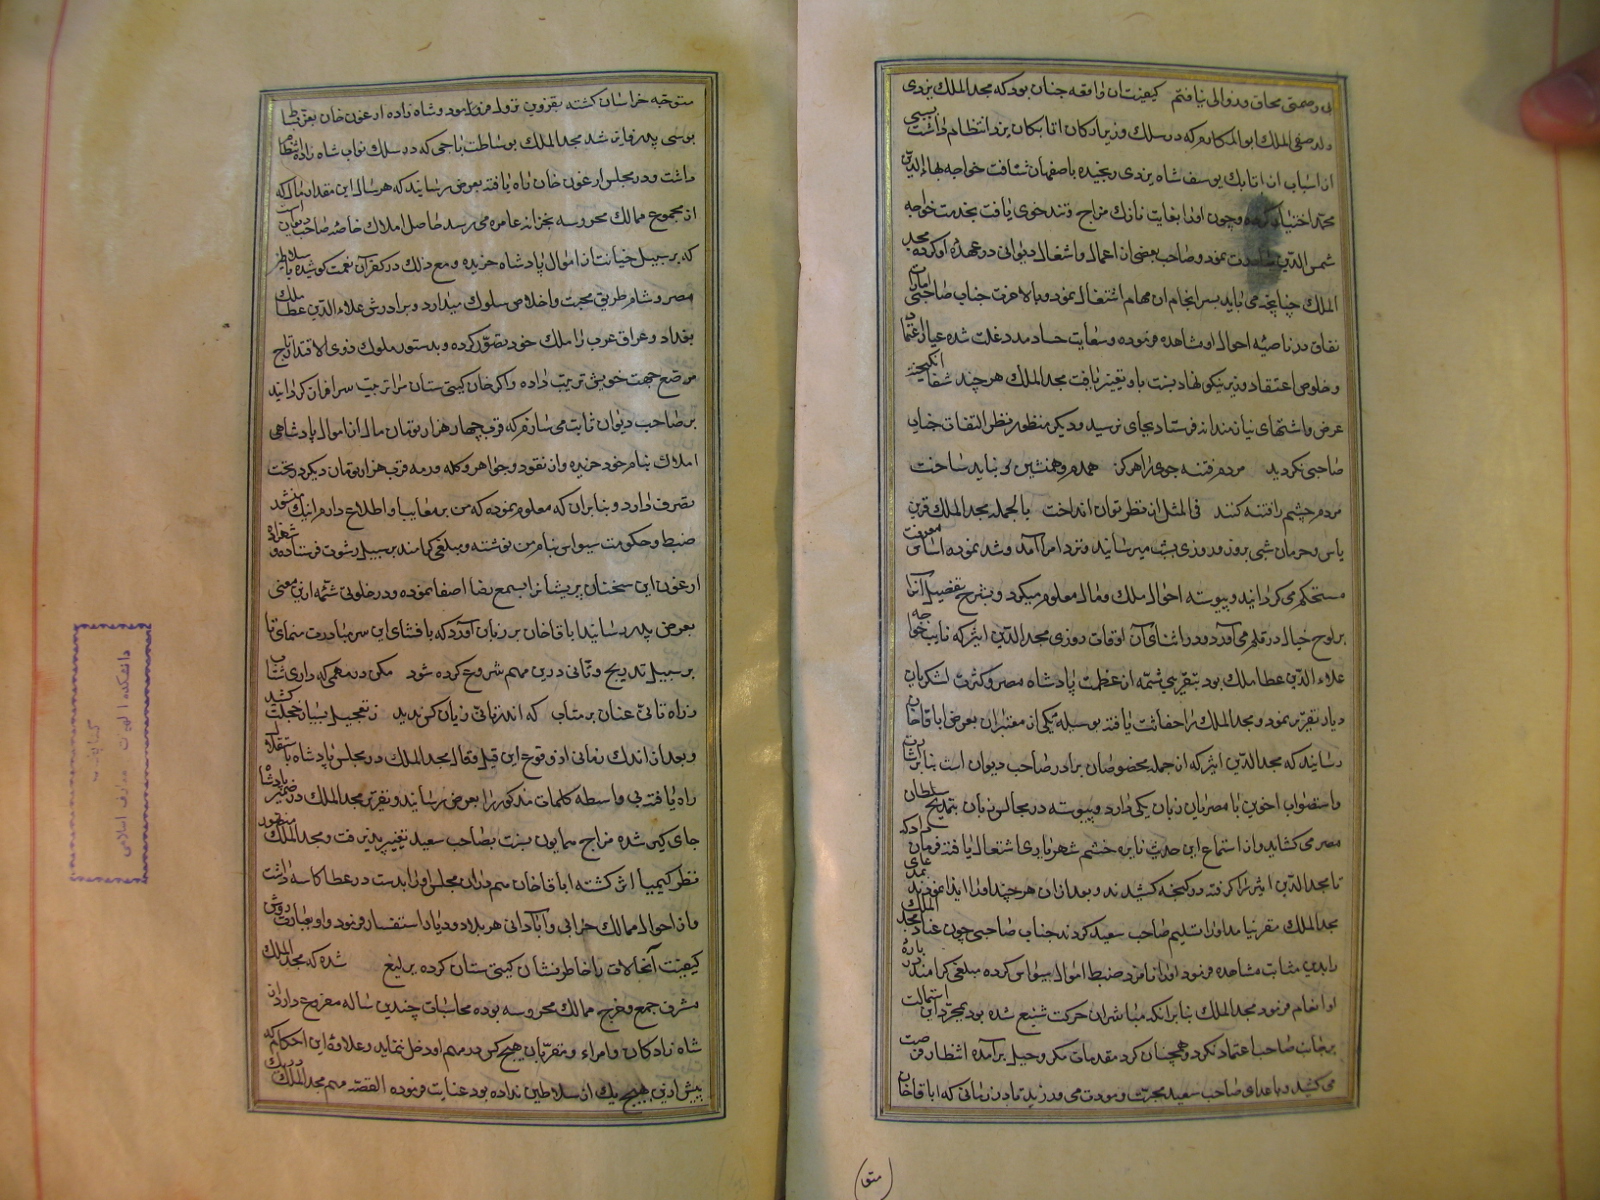 بی رخصتی محاق و زوالی نیافتم کیفیت این واقعه چنان بود که مجد الملک یزدی
ولد صفی الملک ابو المکارم که در سلک وزیرادکان اتابکان یزد انتظام داشت بسببی
از اسباب از اتابک یوسف شاه یزدی رنجیده باصفهان شتافت خواجه بهاء الدین
محمد اختیار کرده و چون او را بغایت نازک مزاج و تندخوی یافت بخدمت خواجه
شمس الدین نمود و صاحب بعضی از اعمال و اشغال دیوانی در عهده او کرده مجد
الملک چنانچه می باید بسرانجام ان مهام اشتغال نمود و بالاخرة جناب صاحبی امارات
نفاق در ناصیه احوال او مشاهده فرموده و سعایت حساد مدد علت شده عیار اعتماد
و خلوص اعتقاد وزیر نیکو نهاد بنسبت باو تغییر یافت مجد الملک هر چند شفعا انگیخته
عرض داشتهای نیازمندانه فرستاد بجای نرسید و دیگر منظور نظر التفات جناب
صاحبی نکردید مردم فتنه جوی را هرکز همدم و همنشین می نباید ساخت
مردم چشم را فتنه کنند فی المثل از نظر توان انداخت بالجمله مجد الملک قرین
یاس و حرمان شبی بروز و روزی بشب میرسانید و نزد امرا آمد و شد نموده اساس معرفت
مستحکم می کردانید و پیوسته احوال ملک و مال معلوم میکرد و بشرح و تفصیل آنرا
بر لوح خیال در قلم می آورد و در اثنای آن اوقات روزی مجد الدین اثیر که نایب خواجه
علاء الدین عطا ملک بود بتقریبی شمه از عظمت پادشاه مصر و کثرت لشکریان
دیار تقریر نمود و مجد الملک راحفاثت یافته بوسیله یکی از مقتبران بعرض اباقا خان
رسانید که مجد الدین اثیر که از جمله مخصوصان برادر صاحب دیوان است بنا بر اشارت
واستصواب اخوین با مصریان زبان یکی دارد و پیوسته در مجالس زبان بتمدیح سلطان
مصر می کشاید و از استماع این حدیث نایره خشم شهریاری اشتعال یافته فرمان داد که
تا مجد الدین اثیر را گرفته در کنجه کشیدند و بعد از ان هر چند او را ایذا نمودند بمدعای
مجد الملک مقر نیامد او را تسلیم صاحب سعید کردند جناب صاحبی چون عناد مجد الملک
را بدین مثابت مشاهده فرمود او را نامزد ضبط اموال سیواس کرده مبلغی کرامند در باره
او انعام فرمود مجد الملک بنا برانکه مباشر ان حرکت شنیع شده بود بمجرد این استمالت
بر جانب صاحب اعتماد نکرد و همچنان کرد مقدمات مکر و حیل برآمده انتظار فرصت
می کشید و با عدای صاحب سعید محبت و مودت می ورزید تا در زمانی که اباقا خان
متو
متوجه خراسان کشته بقزوین نزول فرموده بود و شاه زاده ارغون خان بعز بساط
بوسی پدر فایز شد مجد الملک بوساطت باجی که در سلک نواب شاه زاده انتظام
داشت و در مجلس ارغون خان راه یافته بعرض رسانید که هر ساله این مقدار مال که
از مجموع ممالک محروسه بخزانه عامره می رسد حاصل املاک خاصه صاحب دیوان است
که بر سبیل خیانت از اموال پادشاه خریده و مع ذلک در کفران نعمت کوشیده با سلاطین
مصر و شام طریق محبت و اخلاص سلوک میدارد و برادرش علاء الدین عطا ملک
بغداد و عراق عرب را ملک خود تصور کرده و بدستور ملوک ذوی الاقتدار تاج
مرصع جهت خویش ترتیب داده و اکر خان کیتی ستان مرا تربیت سرافراز کردانید
بر صاحب دیوان ثابت می سازم که قرب چهار هزار تومان مال از اموال پادشاهی
املاک بنام خود خریده و از نقود و جواهر و کله و رمه قرب هزار تومان دیکر در تحت
تصرف دارد و بنابران که معلوم نموده که من بر معایب او اطلاع دارم اینک منشور
ضبط و حکومت سیواس بنام من نوشته و مبلغی کرامند بر سبیل رشوت فرستاده و شهزاده
ارغون این سخنان پریشانرا بسمع رضا اصغا نموده و در خلوتی شمه ازین معنی
بعرض پدر رسانید اباقا خان بر زبان آورد که بافشای این سر مبادرت منمای تا
بر سبیل تدریج و تانی درین مهم شروع کرده شود مکن در مهمی که داری شتاب
ز راه تانی عنان بر متاب که اندر تانی زیان کس ندید ز تعجیل بسیار خجلت کشد
و بعد از اندک زمانی از وقوع این قیل و قال مجد الملک در مجلس پادشاه با استقلال
راه یافته بی واسطه کلمات مذکور را بعرض رسانید و تقریر مجد الملک در ضمیر پادشاه
جای کیر شده مزاج همایون بنسبت بصاحب سعید تغییر پذیرفت و مجد الملک منظور
نظر کیمیا اثر کشته اباقا خان هم دران مجلس او را بدست در عطا کاسه داشت
و از احوال ممالک خرابی و آبادانی هر بلاد و دیار استفسار فرمود و او بعبارت روشن
کیفیت آنحالات را خاطر نشان کیتی ستان کرده یرلیغ شده که مجد الملک
مشرف جمع و خرج ممالک محروسه بوده محاسبات چندین ساله مفروغ دارد از
شاه زادکان و امراء و مقربان هیچ کس در مهم او دخل ننماید و علاوه این احکام که
پیش ازین بهیچ یک از سلاطین نداده بود عنایت فرموده القصه مهم مجد الملک
دانشکده الهیات و معارف اسلامی
کتابخانه